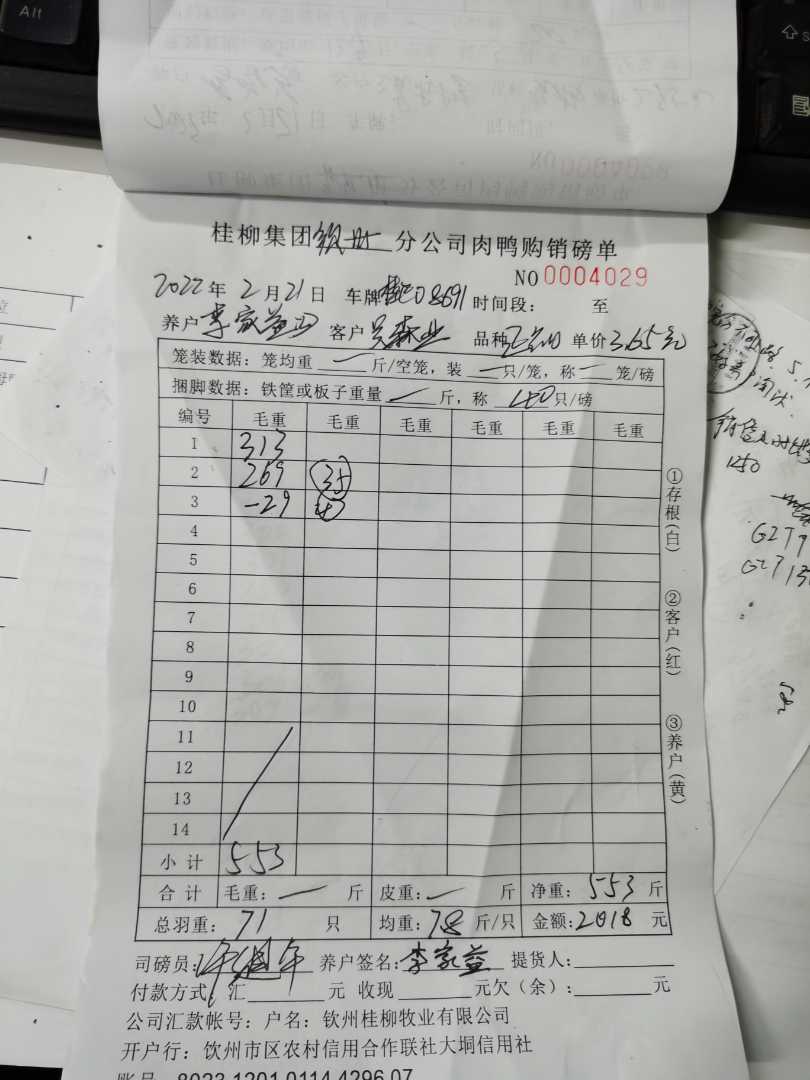 Alt
桂柳集团钦州分公司肉鸭购销磅单
NO 0004029
2022年2月21日 车牌桂E08691 时间段: 至
养户李家益 客户 吴森业 品种 单价3.65元
笼装数据: 笼均重 一 斤/空笼, 装 一 只/笼, 称 一 笼/磅
捆脚数据: 铁筐或板子重量 一 斤, 称 40 只/磅
编号 毛重 毛重 毛重 毛重 毛重 毛重
1 313
2 269 35
3 -29
4
5
6
7
8
9
10
11
12
13
14
小计 553
合计 毛重: 一 斤 皮重: 一 斤 净重: 553 斤
总羽重: 71 只 均重: 7.8 斤/只 金额: 2018 元
司磅员: 养户签名: 李家益 提货人:
付款方式: 汇 元 收现 元欠(余): 元
公司汇款帐号: 户名: 钦州桂柳牧业有限公司
开户行: 钦州市区农村信用合作联社大垌信用社
账号 8023 1201 0114 4296 07
①存根(白)
②客户(红)
③养户(黄)
1250